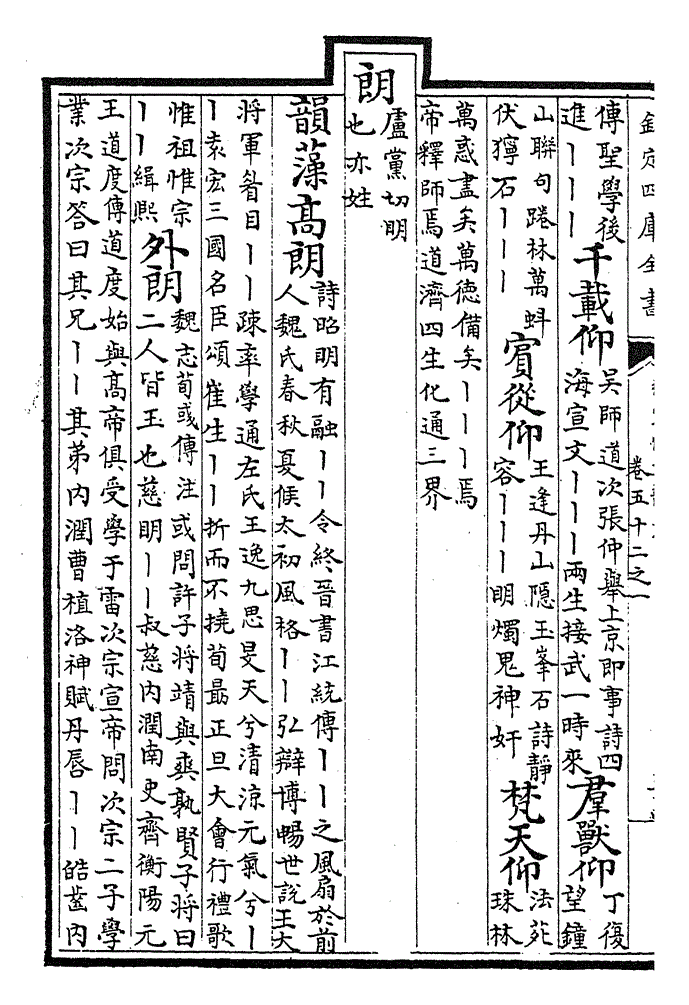 欽定四庫全書
卷五十二之一
傳聖學後
進丨丨丨
千載仰
吳師道次張仲舉上京即事詩四
海宣文丨丨丨兩生接武一時來
羣獸仰
丁復
望鐘
山聯句踡林萬蚪
伏獰石丨丨丨
賓從仰
王逢丹山隱玉峯石詩靜
容丨丨丨明燭鬼神奸
梵天仰
法苑
珠林
萬惑盡矣萬德備矣丨丨丨焉
帝釋師焉道濟四生化通三界
朗
盧黨切明
也亦姓
韻藻高朗
詩昭明有融丨丨令終晉書江統傳丨丨之風扇於前
人魏氏春秋夏侯太初風格丨丨弘辯博暢世說王大
將軍睂目丨丨疎率學通左氏王逸九思旻天兮清涼元氣兮丨
丨袁宏三國名臣頌崔生丨丨折而不撓荀勗正旦大會行禮歌
惟祖惟宗
丨丨緝熙
外朗
魏志荀彧傳注或問許子將靖與爽孰賢子將曰
二人皆玉也慈明丨丨叔慈內潤南史齊衡陽元
王道度傳道度始與高帝俱受學于雷次宗宣帝問次宗二子學
業次宗答曰其兄丨丨其弟內潤曹植洛神賦丹唇丨丨皓齒內